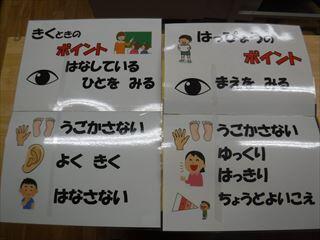 きくときの
ポイント
はなしている
ひとを みる
うごかさない
よく きく
はなさない
はっぴょうの
ポイント
まえを みる
うごかさない
ゆっくり
はっきり
ちょうどよいこえ